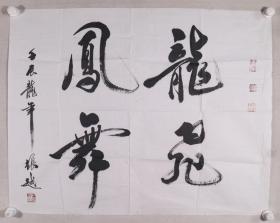 龍飛
鳳舞
壬辰龍年 振越